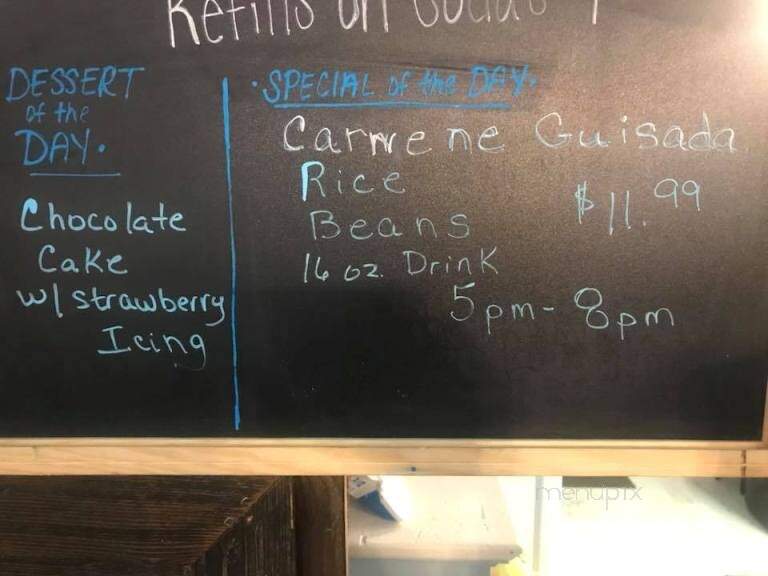 Refills on Sodas
DESSERT
of the
DAY.
Chocolate
Cake
w/ strawberry
Icing
· SPECIAL of the DAY.
Carnene Guisada
Rice
Beans
$11.99
16 oz. Drink
5pm - 8pm
menupix